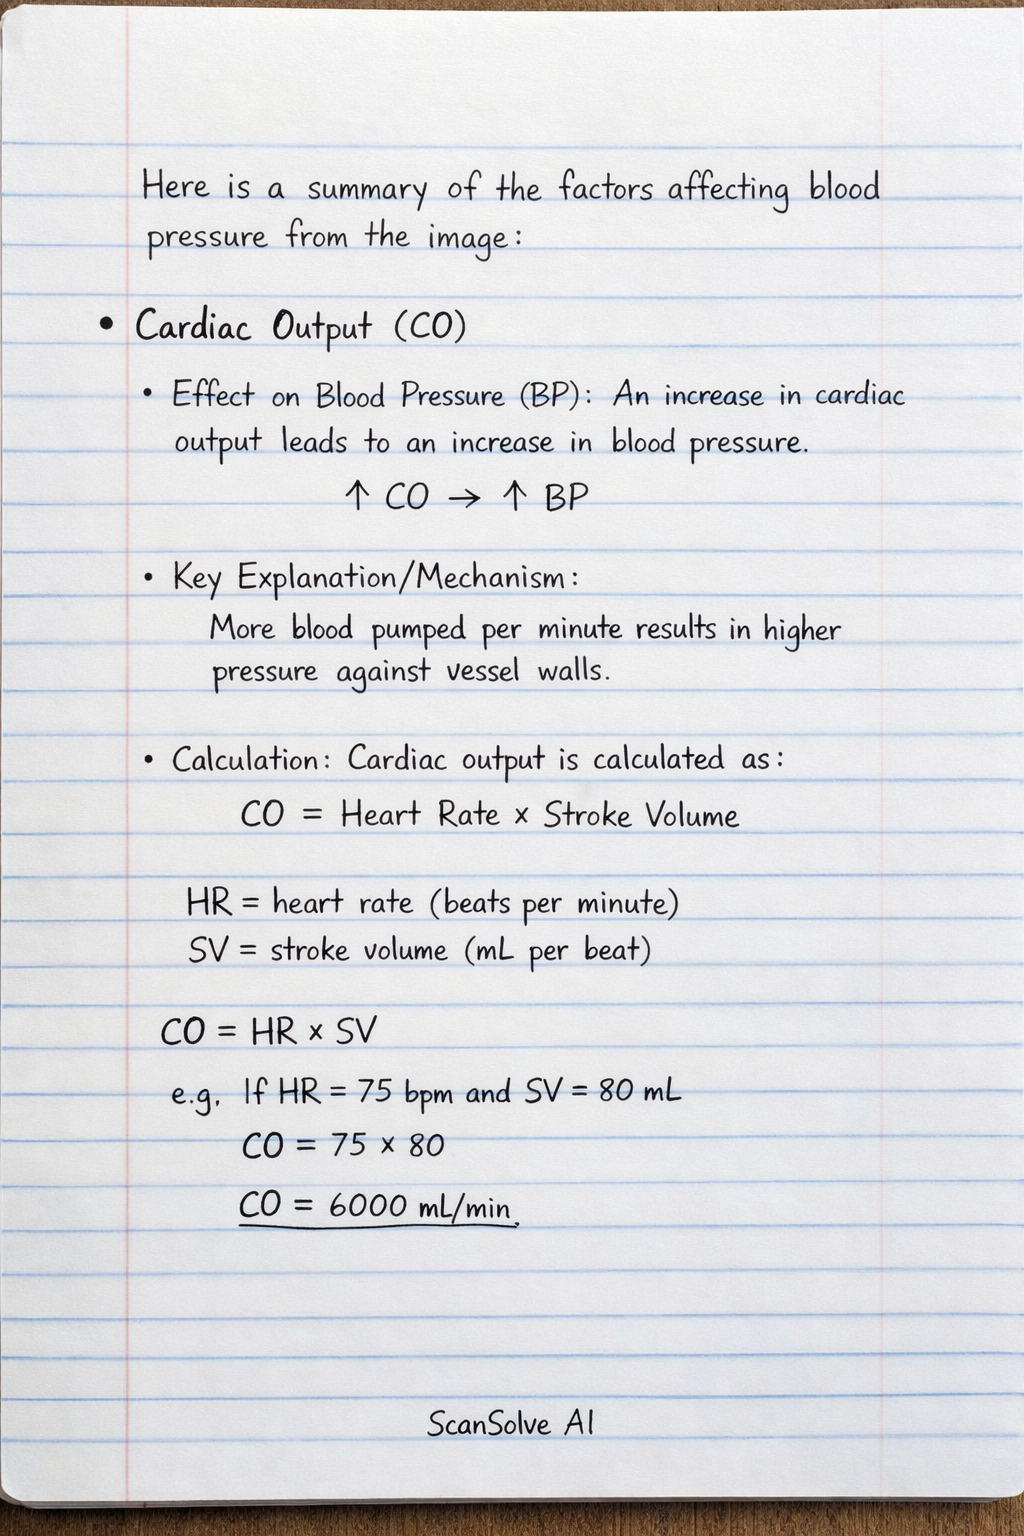 Here is a summary of the factors affecting blood
pressure from the image:
• Cardiac Output (CO)
• Effect on Blood Pressure (BP): An increase in cardiac
output leads to an increase in blood pressure.
↑ CO → ↑ BP
• Key Explanation/Mechanism:
More blood pumped per minute results in higher
pressure against vessel walls.
• Calculation: Cardiac output is calculated as:
CO = Heart Rate × Stroke Volume
HR = heart rate (beats per minute)
SV = stroke volume (mL per beat)
CO = HR × SV
e.g. If HR = 75 bpm and SV = 80 mL
CO = 75 × 80
CO = 6000 mL/min.
ScanSolve AI